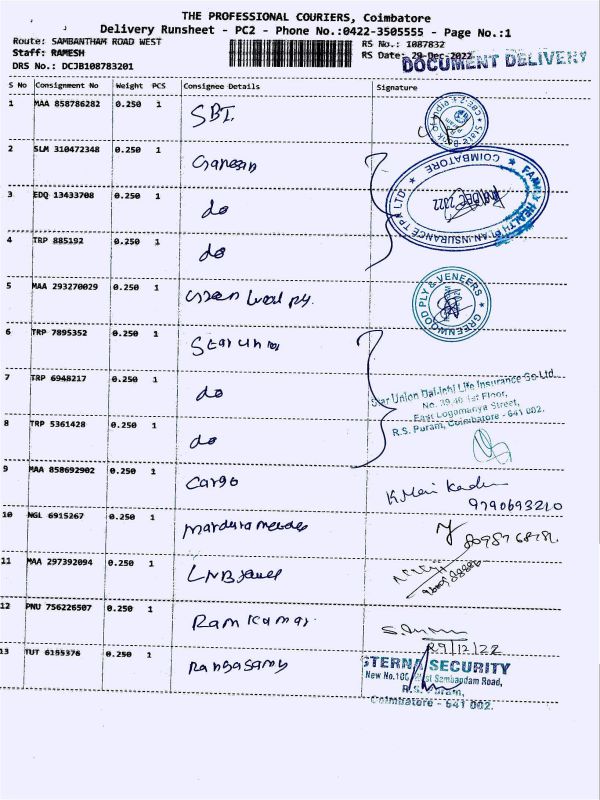 THE PROFESSIONAL COURIERS, Coimbatore
Delivery Runsheet - PC2 - Phone No.:0422-3505555 - Page No.:1
Route: SAMBANTHAM ROAD WEST
Staff: RAMESH
DRS No.: DCJB108783201
RS No.: 1087832
RS Date: 29-Dec-2022
DOCUMENT DELIVERY
S No Consignment No Weight PCS Consignee Details Signature
1 MAA 858786282 0.250 1 SBI.
State Bank of India
2 SLM 310472348 0.250 1 Ganesan
FAMILY HEALTH PLAN INSURANCE TPA LTD. ★ COIMBATORE ★
DEC 2022
3 EDQ 13433708 0.250 1 do
4 TRP 885192 0.250 1 do
5 MAA 293270029 0.250 1 Green Wood ply.
GREENWOOD PLY & VENEERS ★
6 TRP 7895352 0.250 1 Star Union
7 TRP 6948217 0.250 1 do
Star Union Dai-ichi Life Insurance Co Ltd.
No. 39,40 1st Floor,
East Logamanya Street,
R.S. Puram, Coimbatore - 641 002.
8 TRP 5361428 0.250 1 do
9 MAA 858692902 0.250 1 Cargo
9790693210
10 NGL 6915267 0.250 1
11 MAA 297392094 0.250 1 LNB
12 PNU 756226507 0.250 1 Ram Kumar
29/12/22
13 TUT 6155376 0.250 1 Rangasamy
STERNA SECURITY
Sambandam Road,
R.S. Puram,
Coimbatore - 641 002.